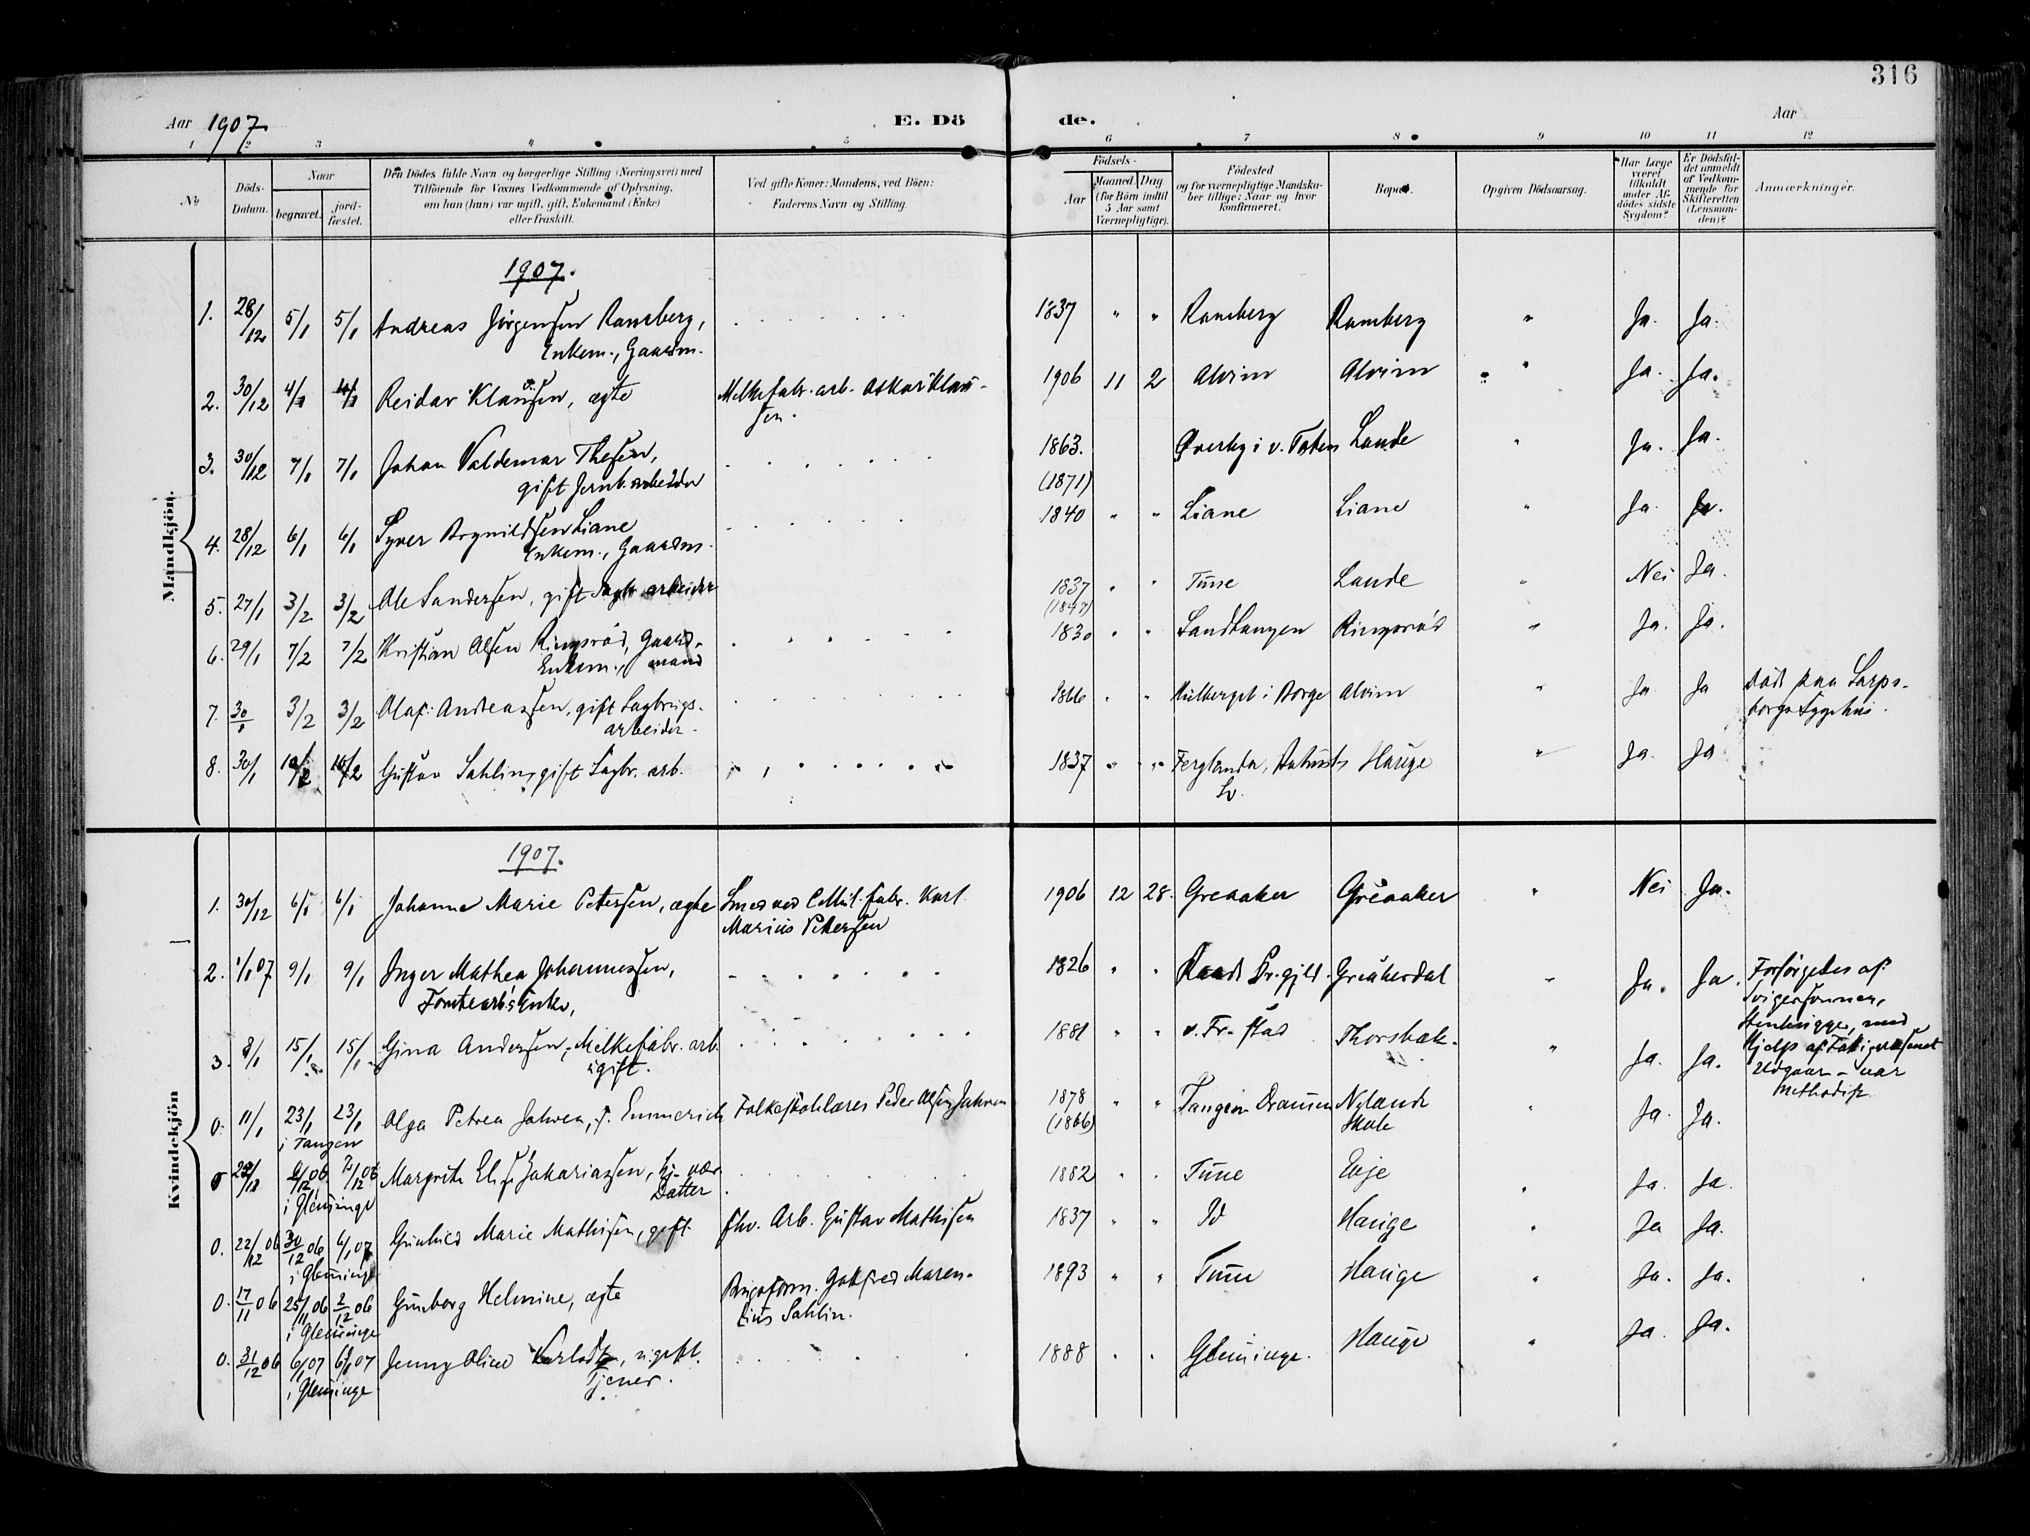 316
Aar 1907
E. Dö de.
Aar
1 2 3 4 5 6 7 8 9 10 11 12
No
Döds-
Datum.
Naar
begravet.
jord-
fæstet.
Den Dödes fulde Navn og borgerlige Stilling (Næringsvei) med
Tilföiende for Voxnes Vedkommende af Oplysning,
om han (hun) var ugift, gift, Enkemand (Enke)
eller fraskilt.
Ved gifte Koner: Mandens, ved Börn:
Faderens Navn og Stilling.
Födsels-
Aar
Maaned. Dag
(for Börn indtil
5 Aar samt
Værnepligtige).
Födested
og for værnepligtige Mandska-
ber tillige: Naar og hvor
konfirmeret.
Bopæl.
Opgiven Dödsaarsag.
Har Læge
været
tilkaldt
under Af-
dödes sidste
Sygdom?
Er Dödsfal-
det anmeldt
af Vedkom-
mende for
Skifteretten
(Lensman-
den)?
Anmærkninger.
Mandkjön.
1907.
1. 28/12 5/1 5/1 Andreas Jørgensen Ramberg, 1837 " " Ramberg Ramberg " Ja. Ja.
Enkem., Gaardm.
2. 30/12 Reidar Klausen, ægte Melkefabr. arb. Oskar Klau- 1906 11 2 Alvim Alvim " Ja. Ja.
sen.
3. 30/12 7/1 7/1 Johan Valdemar Thesen, 1863. Øverby i v. Toten Lande " Ja. Ja.
gift Jernb. arbeider (1871)
4. 28/12 6/1 6/1 Syver Brynildsen Liane 1840 " " Liane Liane " Ja. Ja.
Enkem., Gaardm.
5. 27/1 3/2 3/2 Ole Sandersen, gift Sagbr arbeider 1837 " " Tune Lande " Nei Ja.
(1847)
6. 29/1 7/2 7/2 Kristian Olsen Ringsrød, Gaard- 1830 " " Sandtangen Ringsrød " Ja. Ja.
Enkem., mand
7. 30/1 3/2 3/2 Olaf Andreassen, gift Sagbrugs- 1866 " " i Borge Alvim " Ja Ja Død paa Sarps-
arbeider. borgs Sygehus.
8. 30/1 10/2 10/2 Gustav Sahlin, gift Sagbr. arb. 1837 " " Ferglanda, Hauge " Ja. Ja
Sv.
Kvindekjön
1907.
1. 30/12 6/1 6/1 Johanne Marie Petersen, ægte Smed ved Cellul. fabr. Karl 1906 12 28. Greaaker Greaaker " Nei Ja.
Marius Petersen
2. 1/1 07 9/1 9/1 Inger Mathea Johannessen, 1826 " " Raade Pr.gjld. Greakerdal " Ja. Ja. Forsørgedes af
Tomtearb's Enke, Svigersønnen,
Stenhugger, med
3. 8/1 15/1 15/1 Gina Andersen, Melkefabr. arb. 1881 " " v. Fr-stad Thorsbak. " Ja. Ja. Hjelp af Fattigvæsenet
ugift. Udgaar - var
Methodist
0. 11/1 23/1 23/1 Olga Petrea Jahren, f. Emmerich Folkeskolelærer Peder Olsen Jahren 1878 " " Tangen Drammen Nylande " Ja. Ja.
i Tangen (1866) Skole
0 6/12 06 7/12 06 Margrethe Elise Zakariassen, 1882 " " Tune Ja. Ja.
i Glemminge Datter
0. 22/12 06 30/12 06 6/1 07 Gunhild Marie Mathisen, gift fhv. Arb. Gustav Mathisen 1837 " " Id Hauge " Ja Ja.
i Glemminge
0. 17/11 06 25/11 06 2/12 06 Gunborg Helmine, ægte Gottfred Maren- 1893 " " Tune Hauge " Ja. Ja.
i Glemminge tius Sahlin.
0. 31/12 06 6/1 07 6/1 07 Jenny Oline ugift. 1888 " " Glemminge. Hauge " Ja. Ja.
i Glemminge Tjener.